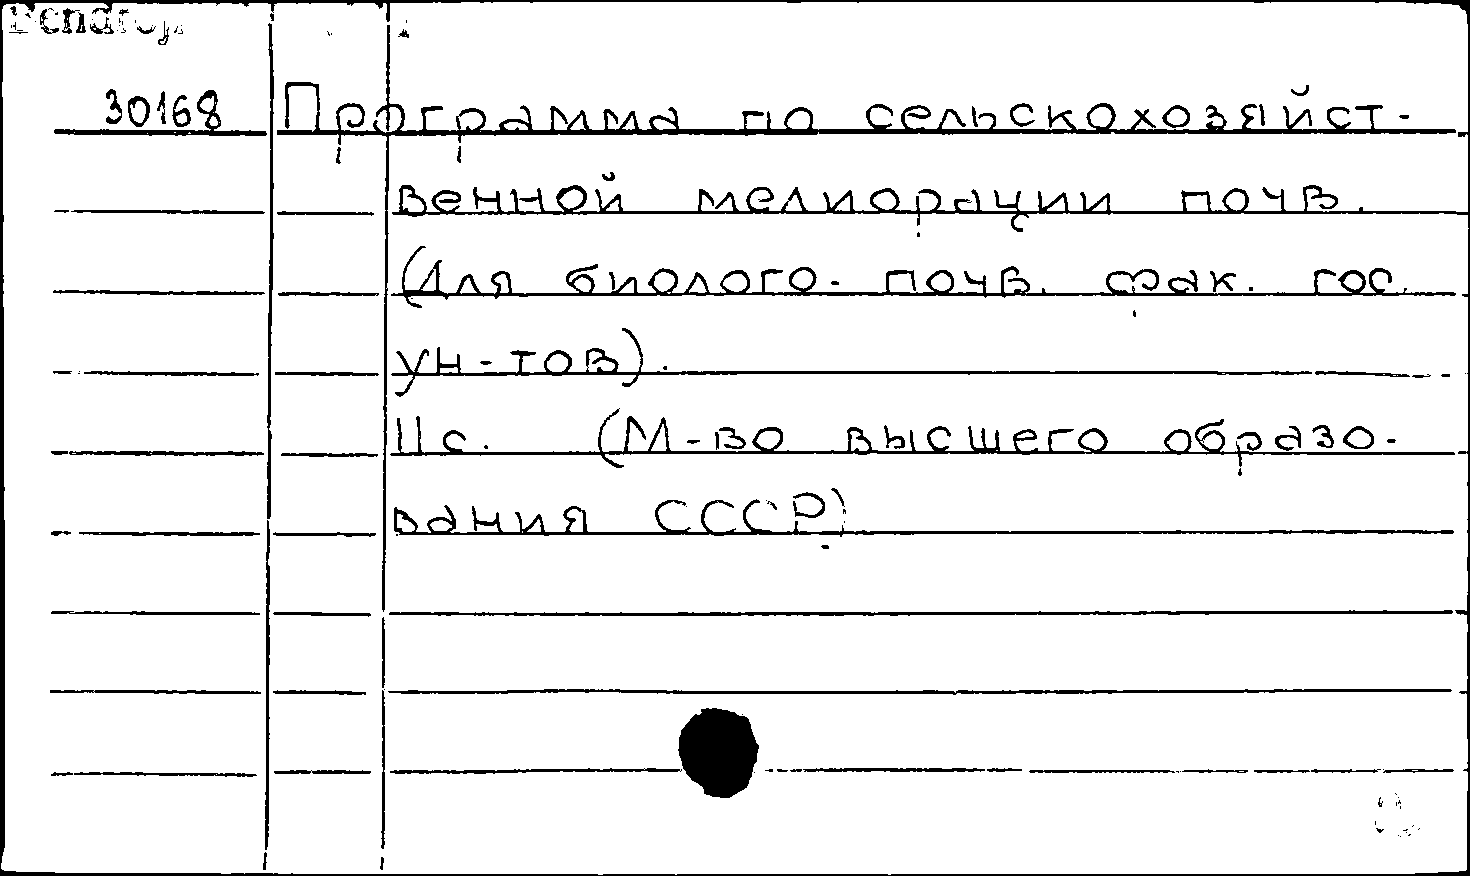 30168 Программа по сельскохозяйст-
венной мелиорации почв.
(Для биолого-почв. фак. гос.
ун-тов).
11 с. (М-во высшего образо-
вания СССР)